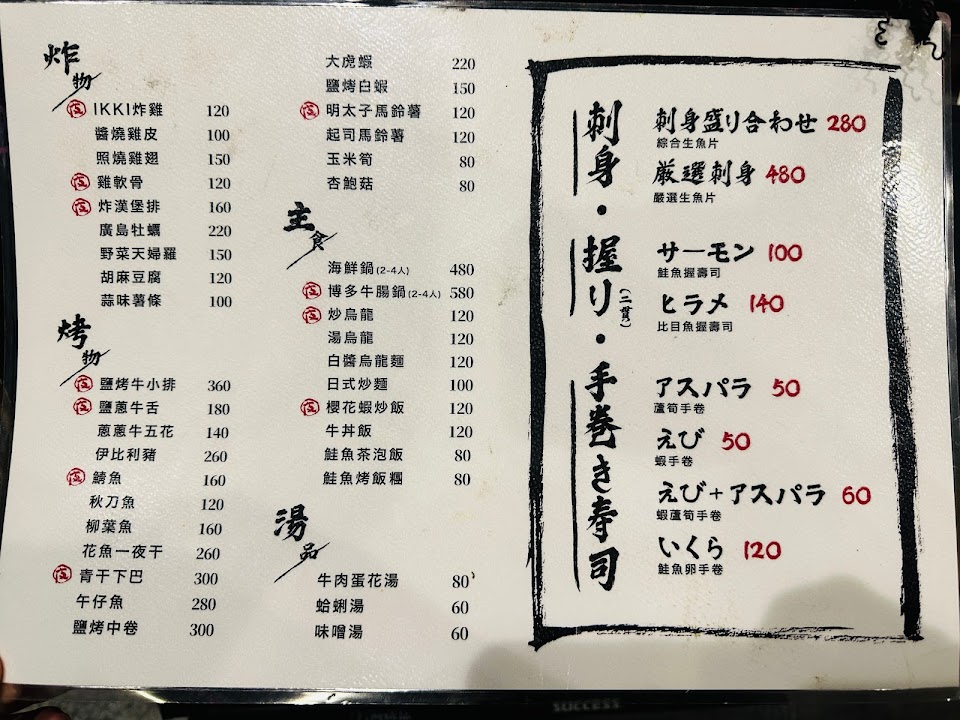 炸物
IKKI炸雞 120
醬燒雞皮 100
照燒雞翅 150
雞軟骨 120
炸漢堡排 160
廣島牡蠣 220
野菜天婦羅 150
胡麻豆腐 120
蒜味薯條 100
烤物
鹽烤牛小排 360
鹽蔥牛舌 180
蔥蔥牛五花 140
伊比利豬 260
鯖魚 160
秋刀魚 120
柳葉魚 160
花魚一夜干 260
青干下巴 300
午仔魚 280
鹽烤中卷 300
大虎蝦 220
鹽烤白蝦 150
明太子馬鈴薯 120
起司馬鈴薯 120
玉米筍 80
杏鮑菇 80
主食
海鮮鍋(2-4人) 480
博多牛腸鍋(2-4人) 580
炒烏龍 120
湯烏龍 120
白醬烏龍麵 120
日式炒麵 100
櫻花蝦炒飯 120
牛丼飯 120
鮭魚茶泡飯 80
鮭魚烤飯糰 80
湯品
牛肉蛋花湯 80
蛤蜊湯 60
味噌湯 60
刺身・握り(二貫)・手巻き寿司
刺身盛り合わせ 280
綜合生魚片
厳選刺身 480
嚴選生魚片
サーモン 100
鮭魚握壽司
ヒラメ 140
比目魚握壽司
アスパラ 50
蘆筍手卷
えび 50
蝦手卷
えび+アスパラ 60
蝦蘆筍手卷
いくら 120
鮭魚卵手卷
success